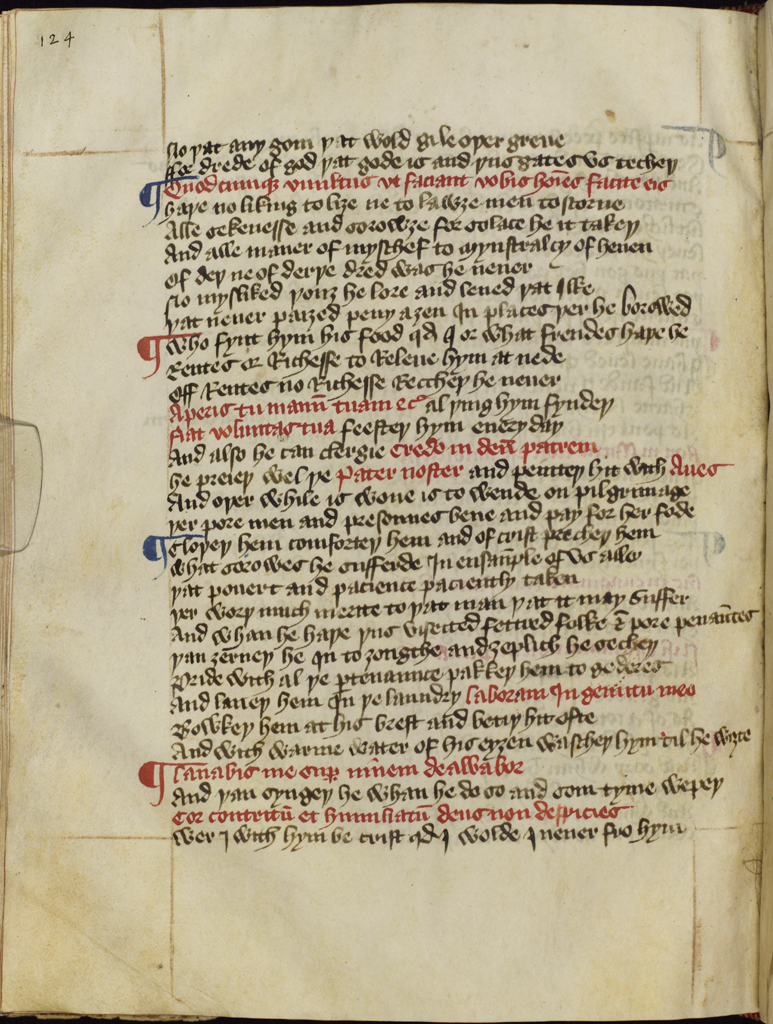 124
No yat any gom yat wold gile oyer greue
ffor drede of god yat gode is and yus gates vs techey
Quodcumqȝ vultus vt faciant vobis hoīes facite eis
haye no liking to lize ne to lawze men to scorne
Alle sekenesse and sorowze for solace he it takey
And alle maner of myschef to mynstralcy of heuen
Of dey ne of derye dred was he neuer
No mysliked youz he lore and lened yat ilke
yat neuer paized peny azen In places yer he borowed
Who fynt hym his food qd I or what frendes haye he
Rentes or Richesse to Releue hym at nede
Off Rentes no Richesse Recchey he neuer
Aperis tu manū tuam ec al ying hym fyndey
fiat voluntas tua feestey hym euery day
And also he can clergie Credo in deū patrem
he preiey wel ye Pater noster and peintey hit with Aues
And oyer while is wone is to wende on pilgrimage
yer pore men and presonnes bene and pay for her fode
Cloyey hem comfortey hem and of crist prechey hem
What sorowes he sufferde In ensample of vs alle
yat pouert and pacience paciently taken
yer wory much merite to yat man yat it may Suffer
And whan he haye yus visected fettred folke & pore penaūtes
yan zerney he In to zongthe and zeplich he sechey
Pride with al ye purtenaunce pakkey hem to gederes
And lauey hem In ye laundry laboram In gemitu meo
Bowkey hem at his brest and betiy hit ofte
And with warme water of his eyzen waschey hym til he waxe
Lauabis me supr niuem dealwabor
And yan syngey he whan he do so and som tyme wepey
Cor contritū et humiliatū deus non despicies
Wer I with hym be crist qd I wolde I neuer fro hym